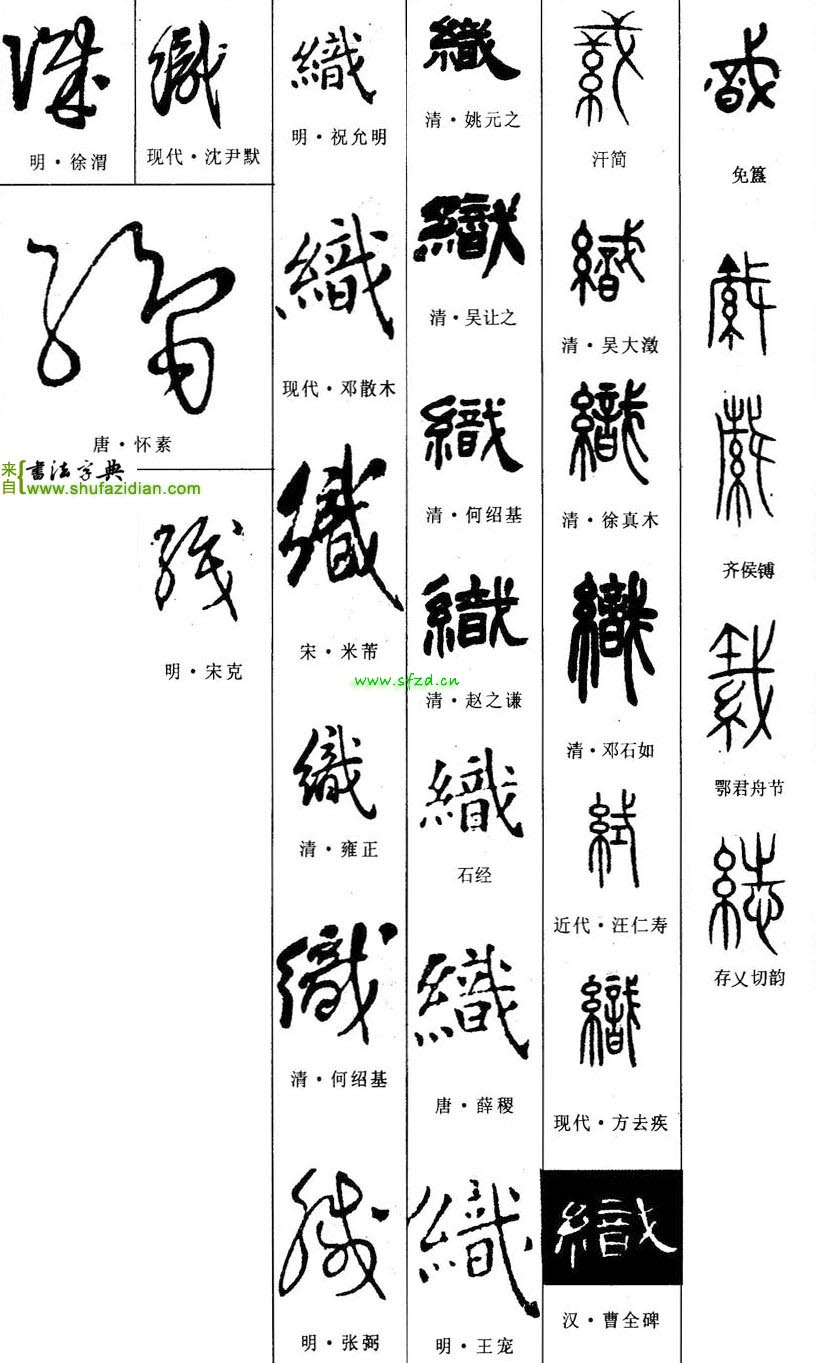 織 織
明·徐渭 现代·沈尹默
織
唐·怀素
来自{书法字典
www.shufazidian.com
織
明·宋克
織
明·祝允明
織
现代·邓散木
織
宋·米芾
www.sfzd.cn
織
清·雍正
織
清·何绍基
織
明·张弼
織
清·姚元之
織
清·吴让之
織
清·何绍基
織
清·赵之谦
織
石经
織
唐·薛稷
織
明·王宠
織
汗简
織
清·吴大澂
織
清·徐真木
織
清·邓石如
織
近代·汪仁寿
織
现代·方去疾
織
汉·曹全碑
免簋
齐侯镈
鄂君舟节
存乂切韵